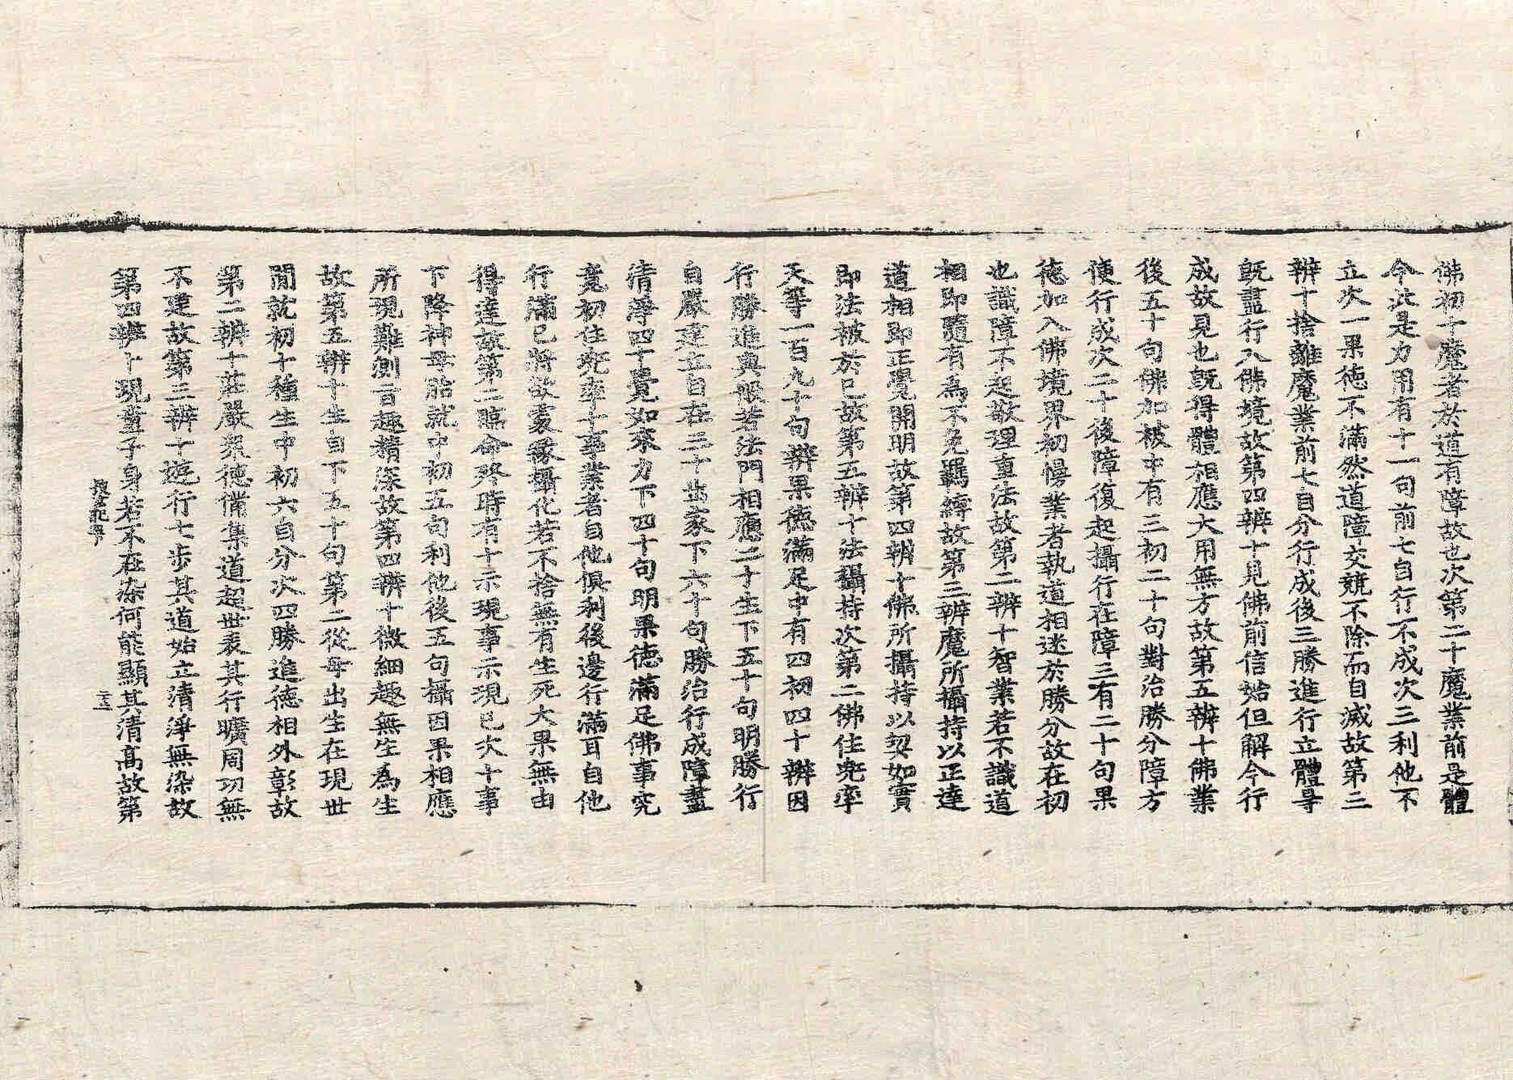 佛初十魔者於道有障故也次第二十魔業前是體
今此是力用有十一句前七自行不成次三利他下
立次一果德不滿然道障交競不除而自滅故第三
辨十捨離魔業前七自分行成後三勝進行立體㝵
旣盡行入佛境故第四辨十見佛前信始但解今行
成故見也旣得體相應大用無方故第五辨十佛業
後五十句佛加被中有三初二十句對治勝分障方
便行成次二十後障復起攝行在障三有二十句果
德加入佛境界初慢業者執道相迷於勝分故在初
也識障不起敬理重法故第二辨十智業若不識道
相即隨有為不免羈縛故第三辨魔所攝持以正達
道相即正覺開明故第四辨十佛所攝持以契如實
即法被於已故第五辨十法攝持次第二佛住兜率
天等一百九十句辨果德滿足中有四初四十辨因
行勝進與般若法門相應二十生下五十句明勝行
自嚴建立自在三十出家下六十句勝治行成障盡
清淨四十覺如來力下四十句明果德滿足佛事究
竟初住兜率十事業者自他俱利後邊行滿耳自他
行滿已將欲䝉緣攝化若不捨無有生死大果無由
得達故第二臨命終時有十示現事示現已次十事
下降神母胎就中初五句利他後五句攝因果相應
所現難測旨趣精深故第四辨十微細趣無生為生
故第五辨十生自下五十句第二從母出生在現世
間就初十種生中初六自分次四勝進德相外彰故
第二辨十莊嚴衆德備集道超世表其行曠周功無
不建故第三辨十遊行七步其道始立清淨無染故
第四辨十現童子身若不在染何能顯其清高故第